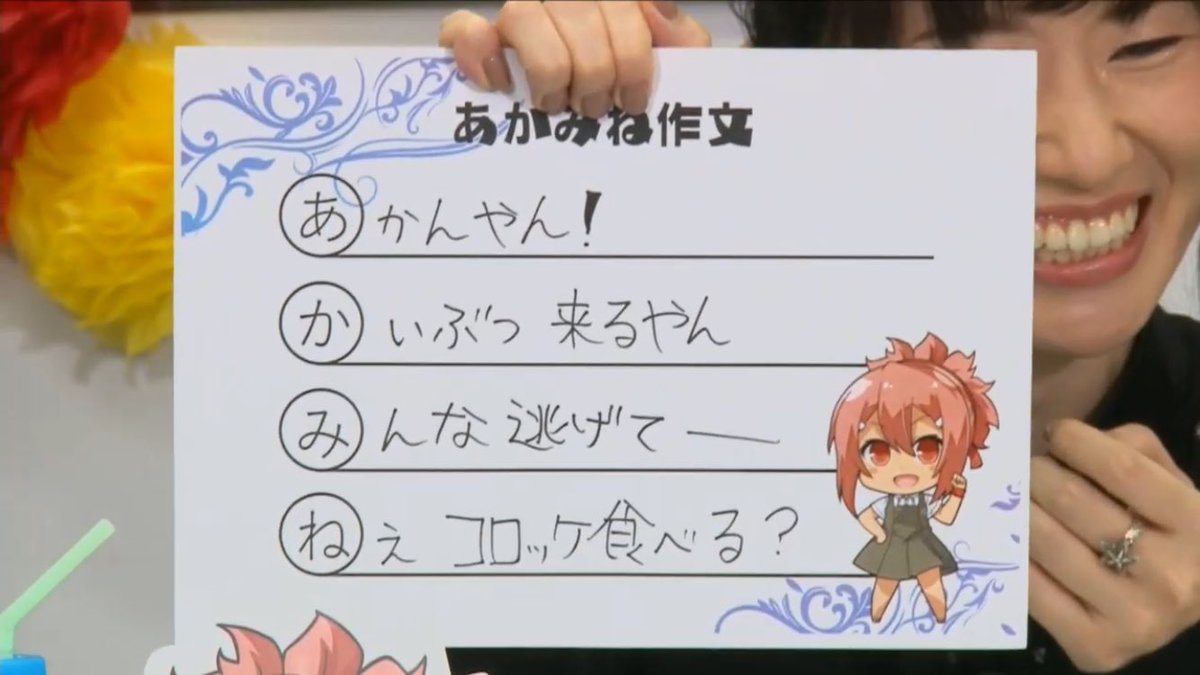 あかみね作文
あかんやん!
かいぶつ 来るやん
みんな逃げてー
ねぇ コロッケ食べる?